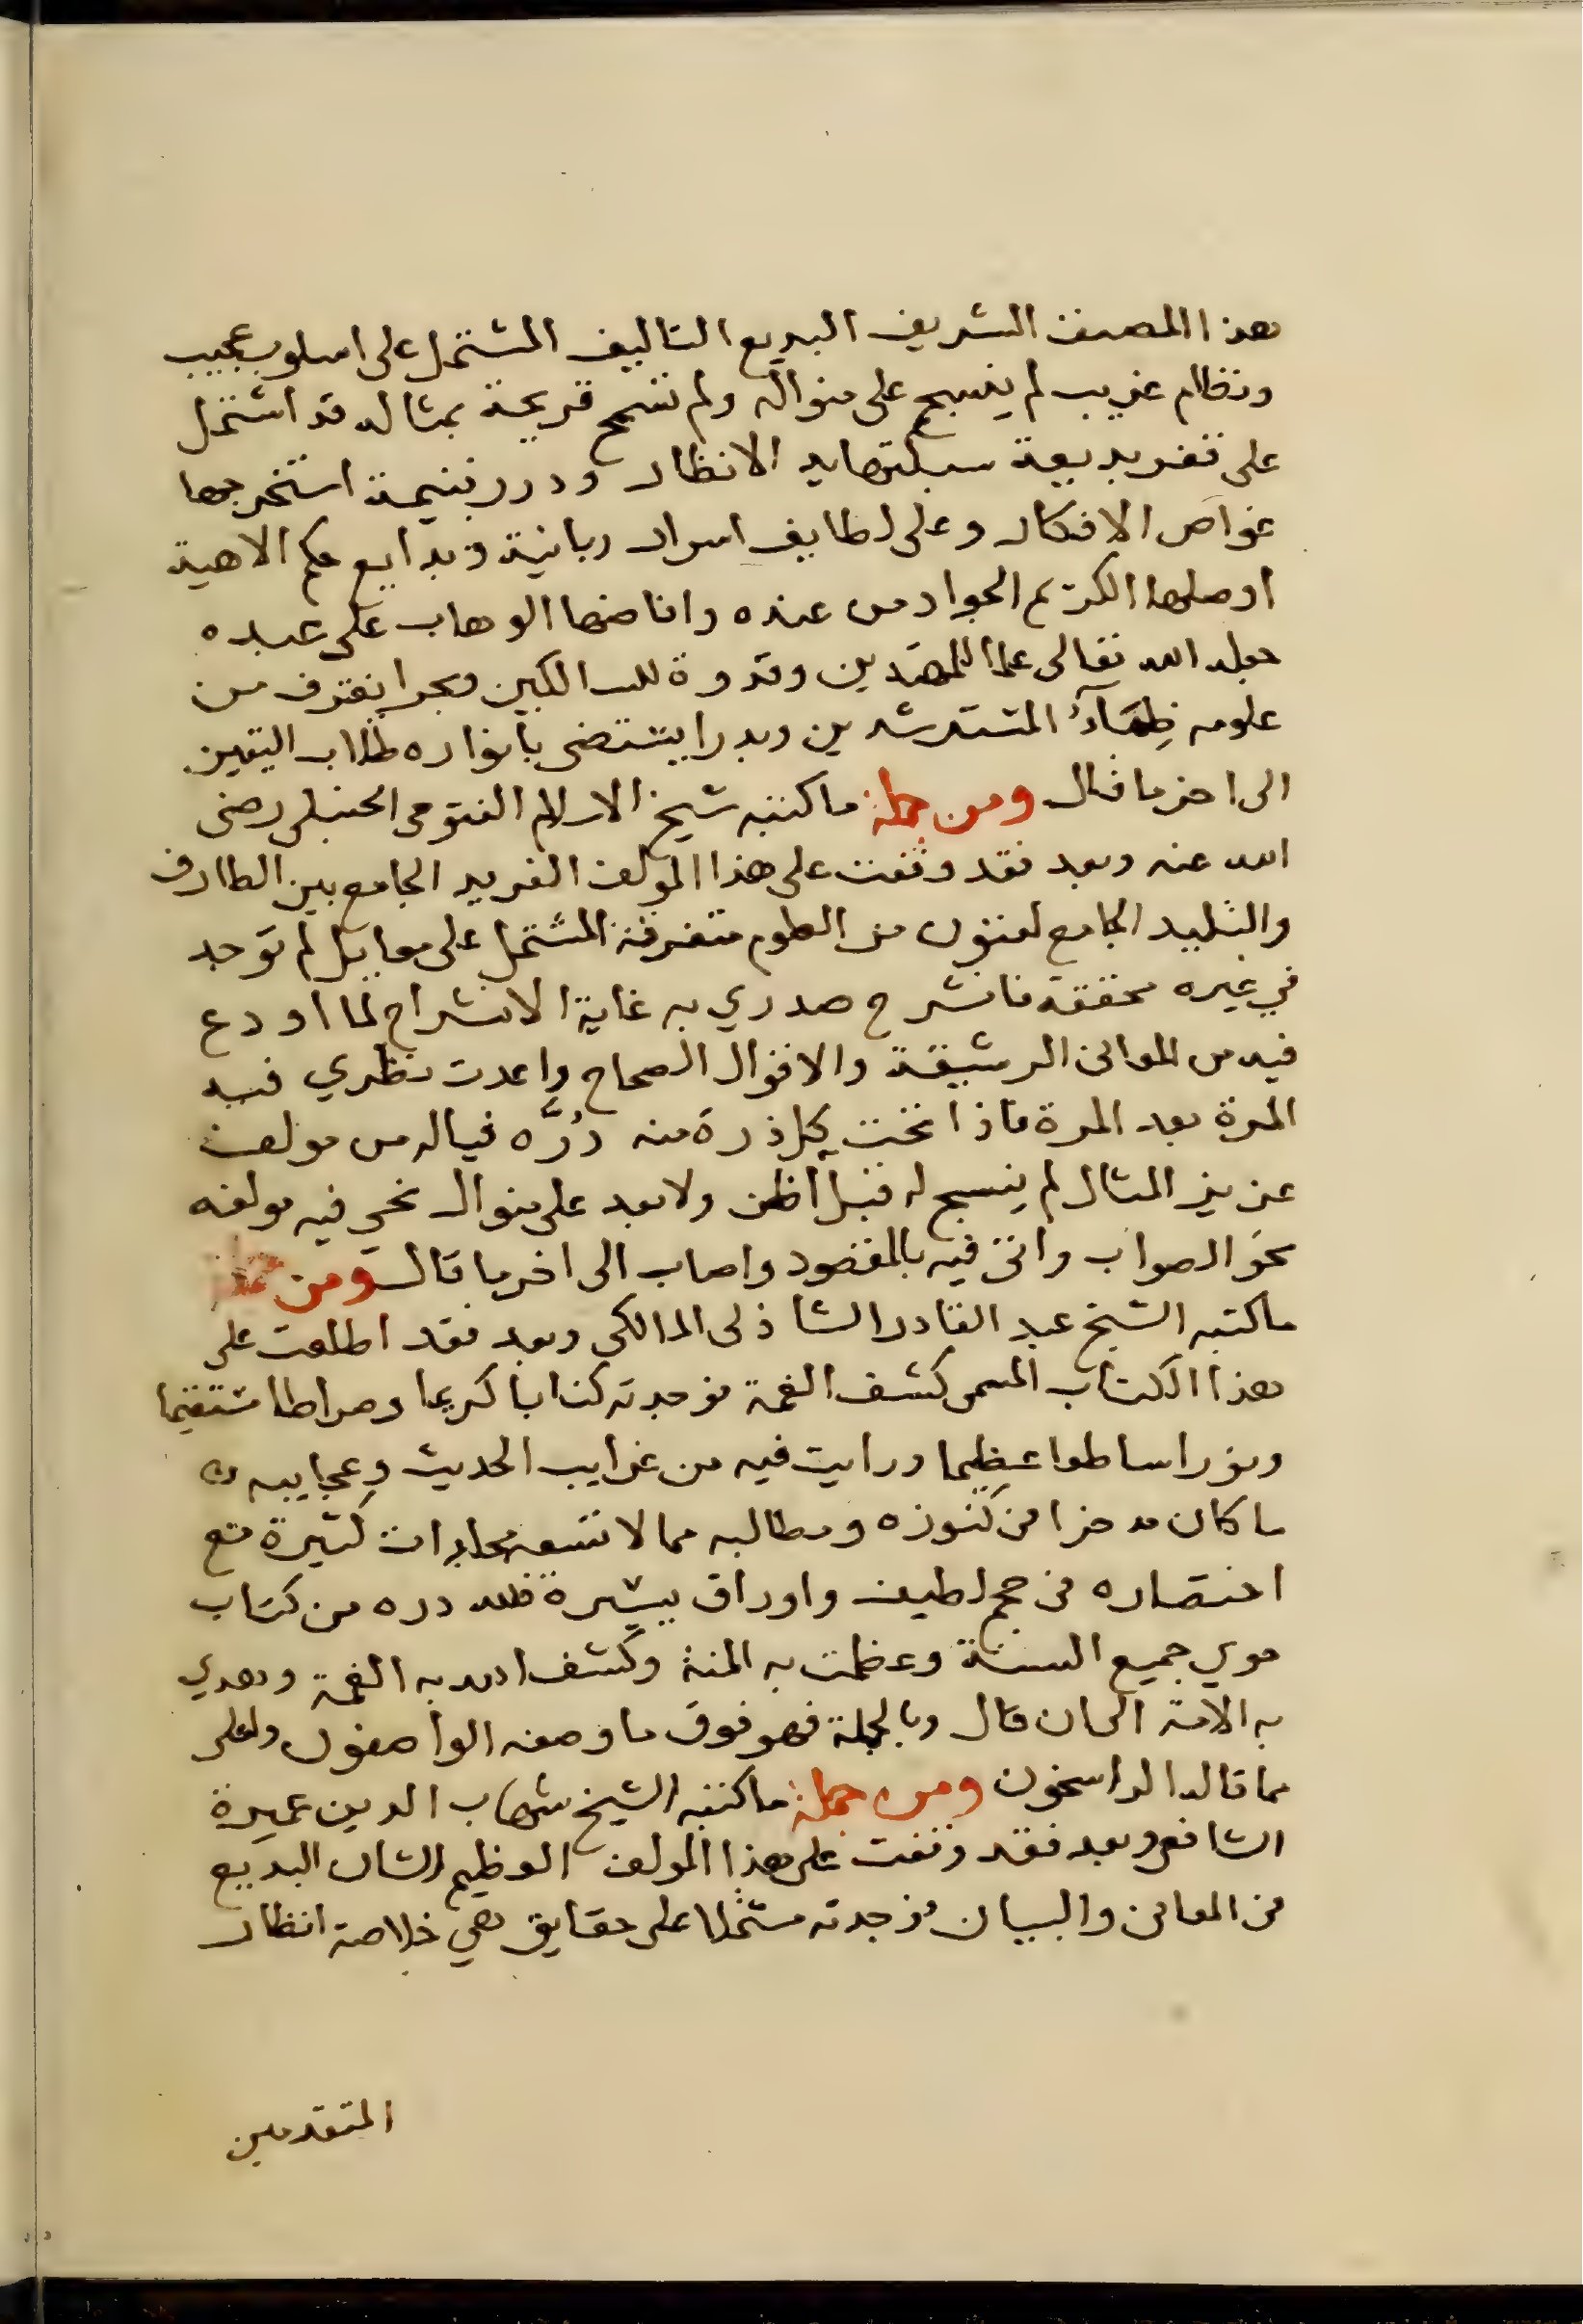 هذا المصنف الشريف البديع التاليف المشتمل على اسلوب عجيب
ونظام غريب لم ينسج على منواله ولم تسمح قريحة بمثاله قد اشتمل
على نقر بديعة سبكتها يد الانظار ودرر يتيمة استخرجها
غواص الافكار وعلى لطايف اسرار ربانية وبدايع حكم الاهية
اوصلها الكريم الجواد من عنده وافاضها الوهاب على عبده
جعله الله تعالى علما للمهتدين وقدوة للسالكين وبحرا يغترف من
علومه ظماء المسترشدين وبدرا يستضى بانواره طلاب اليقين
الى اخر ما قال ومن جملة ما كتبه شيخ الاسلام الفتوحى الحنبلى رضى
الله عنه وبعد فقد وقفت على هذا المولف الفريد الجامع بين الطارف
والتليد الجامع لفنون من العلوم متفرقة المشتمل على مسايل لم توجد
في غيره محققة فانشرح صدري به غاية الانشراح لما اودع
فيه من المعانى الرشيقة والاقوال الصحاح واعدت نظري فيه
المرة بعد المرة فاذا تحت كل ذرة منه دُرَّه فياله من مولف
عزيز المثال لم ينسج له قبل اظن ولا بعد على منوال نحي فيه مولفه
نحو الصواب واتى فيه بالمقصود واصاب الى اخر ما قال ومن جملة
ما كتبه الشيخ عبد القادر الشاذلى المالكى وبعد فقد اطلعت على
هذا الكتاب المسمى كشف الغمة فوجدته كتابا كريما وصراطا مستقيما
ونورا ساطعا عظيما ورايت فيه من غرايب الحديث وعجايبه
ما كان مدخرا من كنوزه ومطالبه مما لا تسعه مجلدات كثيرة مع
اختصاره فى حجم لطيف واوراق يسيرة فلله دره من كتاب
حوي جميع السنة وعظمت به المنة وكشف الله به الغمة وهدي
به الامة الى ان قال وبالجملة فهو فوق ما وصفه الواصفون واعلى
مما قاله الراسخون ومن جملة ما كتبه الشيخ شهاب الدين عميرة
الشافعى وبعد فقد وقفت على هذا المولف العظيم الشان البديع
فى المعانى والبيان فوجدته مشتملا على حقايق هي خلاصة انظار
المتقدمين